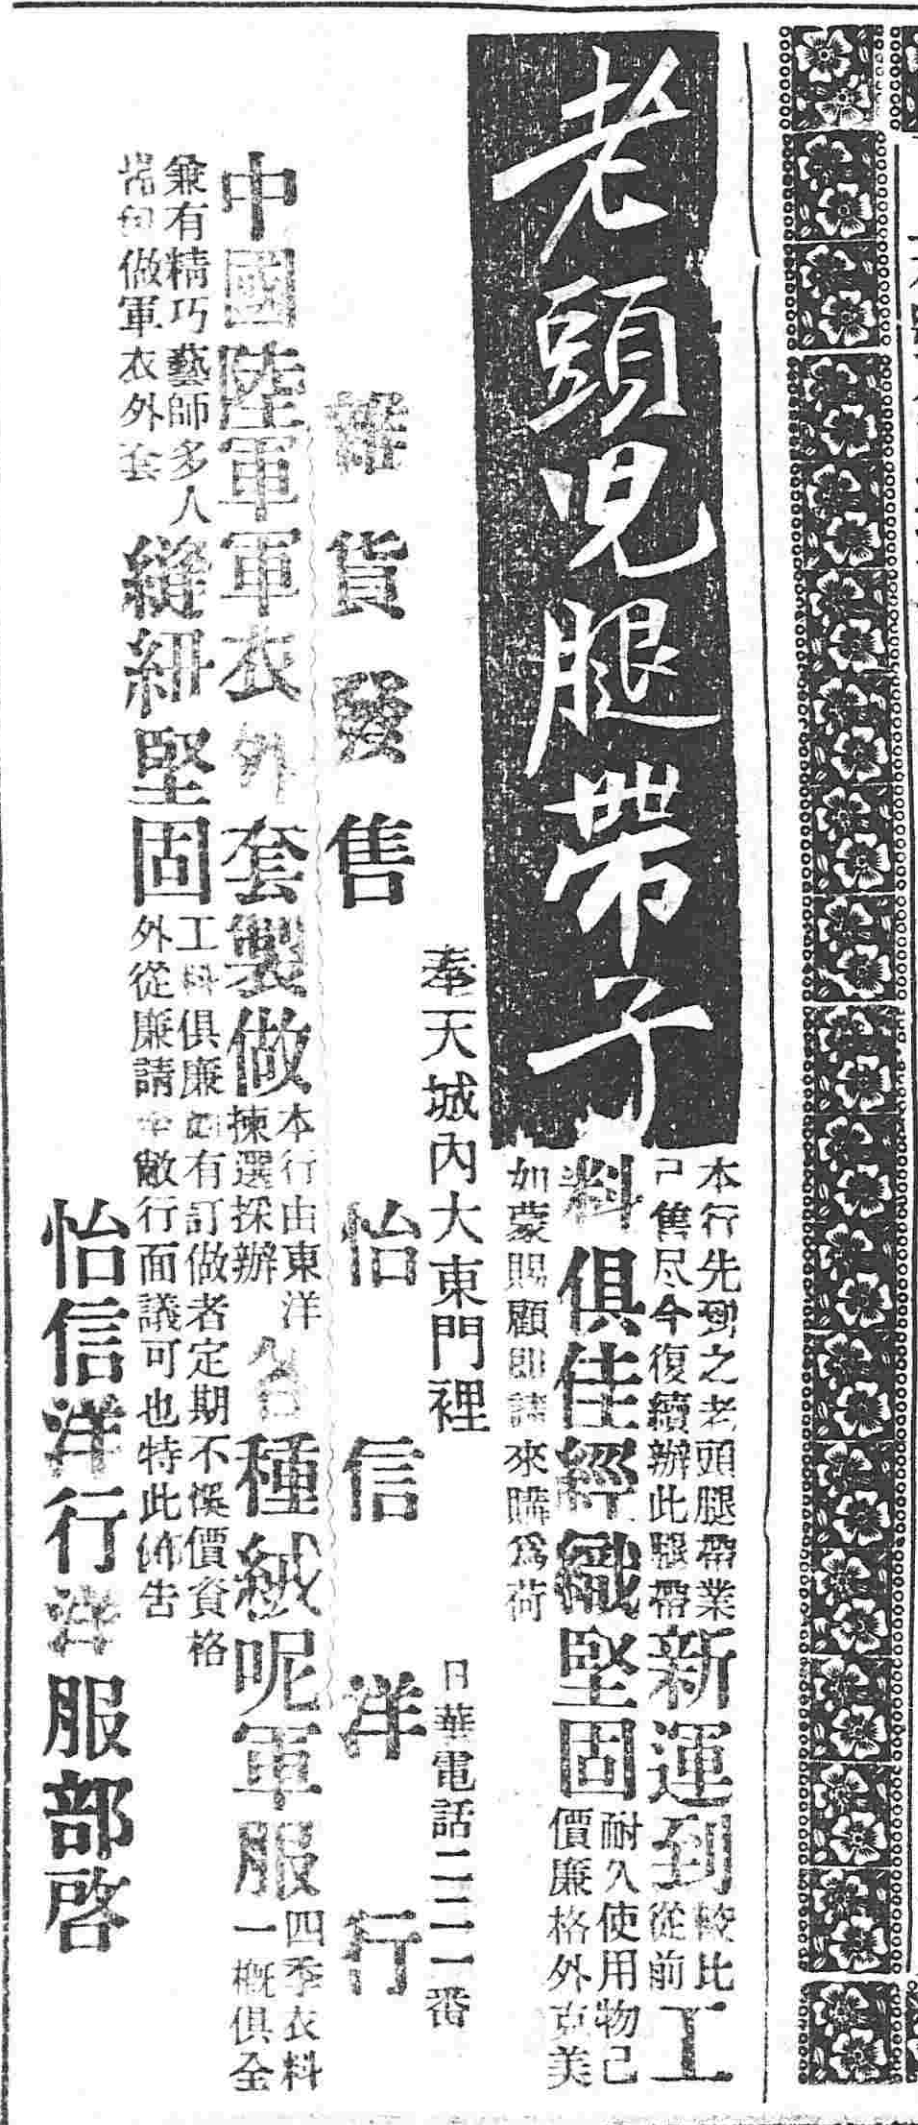 老頭児腿帶子
本行先到之老頭腿帶業
已售尽今復續辦此腿帶
新運到
較比
從前
工
料俱佳經織堅固
耐久使用物已
價廉格外克美
如蒙賜顧即請來購爲荷
奉天城內大東門裡
日華電話二二一番
雜貨發售
怡信洋行
中國陸軍軍衣外套製做
本行由東洋
揀選採辦
各種絨呢軍服
四季衣料
一概俱全
兼有精巧藝師多人
做軍衣外套
縫紉堅固
工料俱廉如有訂做者定期不悞價資格
外從廉請 敝行面議可也特此佈告
怡信洋行洋服部啓